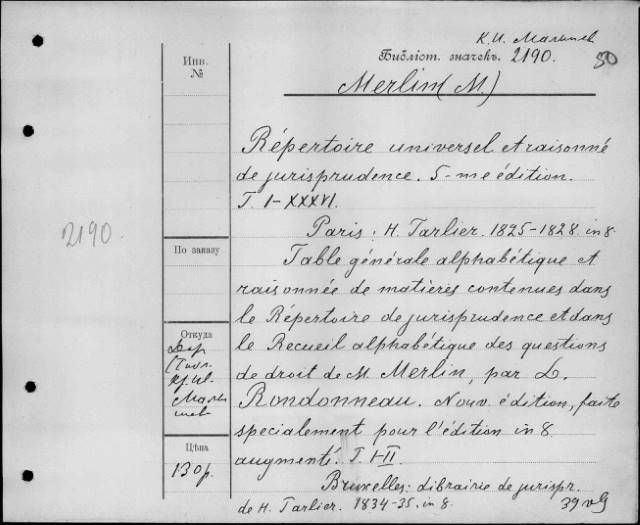 К. И. Малышев
Библіот. значекъ. 2190.
50
Merlin (M)
Инв.
№
Répertoire universel et raisonné
de jurisprudence. 5-me édition.
T. I-XXXVI.
Paris: H. Tarlier. 1825-1828. in 8.
2190.
По заказу
Table générale alphabétique et
raisonnée de matières contenues dans
le Répertoire de jurisprudence et dans
le Recueil alphabétique des questions
de droit de M. Merlin, par L.
Rondonneau. Nouv. édition, faite
specialement pour l'édition in 8.
augmenté. T. I-II.
Bruxelles: librairie de jurispr.
de H. Tarlier. 1834-35. in 8.
39 vol
Откуда
Малы
шев
Цѣна
130 р.